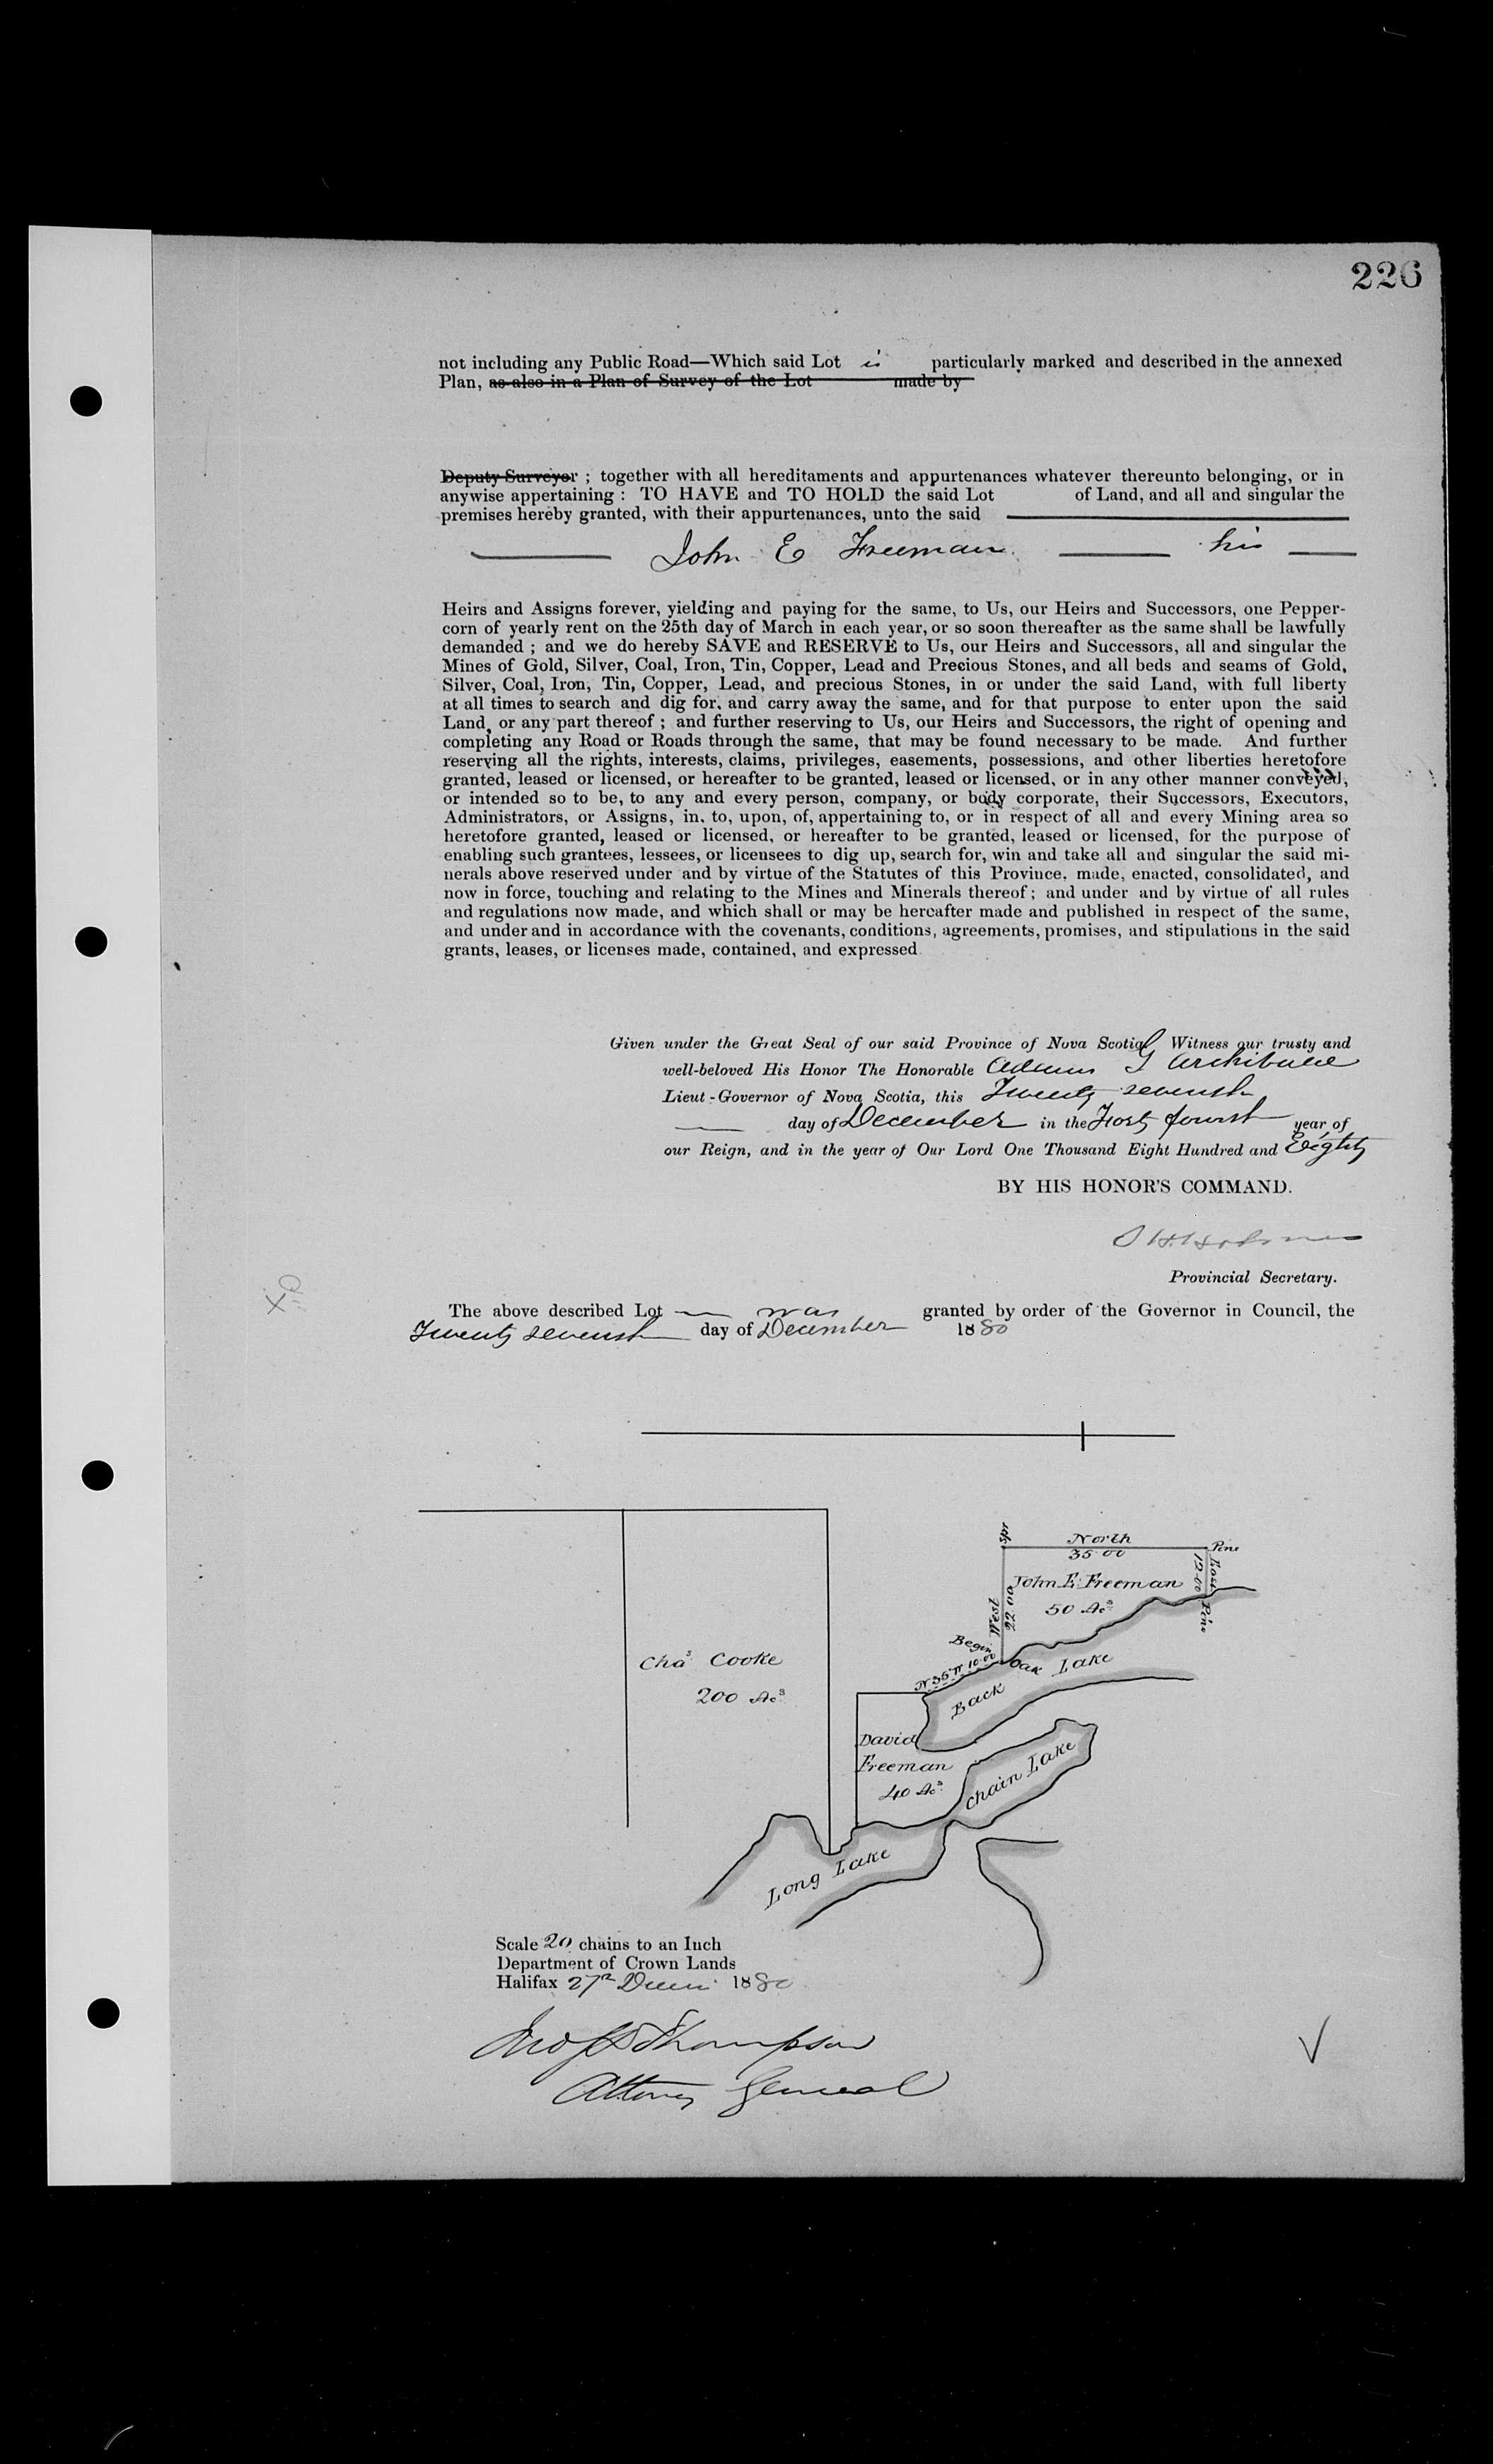 226
not including any Public Road—Which said Lot is particularly marked and described in the annexed
Plan, as also in a Plan of Survey of the Lot made by
Deputy Surveyor ; together with all hereditaments and appurtenances whatever thereunto belonging, or in
anywise appertaining : TO HAVE and TO HOLD the said Lot of Land, and all and singular the
premises hereby granted, with their appurtenances, unto the said
John E Freeman his
Heirs and Assigns forever, yielding and paying for the same, to Us, our Heirs and Successors, one Pepper-
corn of yearly rent on the 25th day of March in each year, or so soon thereafter as the same shall be lawfully
demanded ; and we do hereby SAVE and RESERVE to Us, our Heirs and Successors, all and singular the
Mines of Gold, Silver, Coal, Iron, Tin, Copper, Lead and Precious Stones, and all beds and seams of Gold,
Silver, Coal, Iron, Tin, Copper, Lead, and precious Stones, in or under the said Land, with full liberty
at all times to search and dig for, and carry away the same, and for that purpose to enter upon the said
Land, or any part thereof ; and further reserving to Us, our Heirs and Successors, the right of opening and
completing any Road or Roads through the same, that may be found necessary to be made. And further
reserving all the rights, interests, claims, privileges, easements, possessions, and other liberties heretofore
granted, leased or licensed, or hereafter to be granted, leased or licensed, or in any other manner conveyed,
or intended so to be, to any and every person, company, or body corporate, their Successors, Executors,
Administrators, or Assigns, in, to, upon, of, appertaining to, or in respect of all and every Mining area so
heretofore granted, leased or licensed, or hereafter to be granted, leased or licensed, for the purpose of
enabling such grantees, lessees, or licensees to dig up, search for, win and take all and singular the said mi-
nerals above reserved under and by virtue of the Statutes of this Province, made, enacted, consolidated, and
now in force, touching and relating to the Mines and Minerals thereof ; and under and by virtue of all rules
and regulations now made, and which shall or may be hereafter made and published in respect of the same,
and under and in accordance with the covenants, conditions, agreements, promises, and stipulations in the said
grants, leases, or licenses made, contained, and expressed
Given under the Great Seal of our said Province of Nova Scotia, Witness our trusty and
well-beloved His Honor The Honorable Adams G Archibald
Lieut-Governor of Nova Scotia, this Twenty seventh
day of December in the Forty fourth year of
our Reign, and in the year of Our Lord One Thousand Eight Hundred and Eighty
BY HIS HONOR'S COMMAND.
Provincial Secretary.
The above described Lot was granted by order of the Governor in Council, the
Twenty seventh day of December 1880
Spr
North
35 00
Pine
East
12 00
Pine
John E. Freeman
50 Acs
West
22 00
Begin
N 35 W 10 00
Oak
Back Lake
Chas Cooke
200 Acs
David
Freeman
40 Acs
Chain Lake
Long Lake
Scale 20 chains to an Inch
Department of Crown Lands
Halifax 27th Decm 1880
Jno S D Thompson
Attorney General